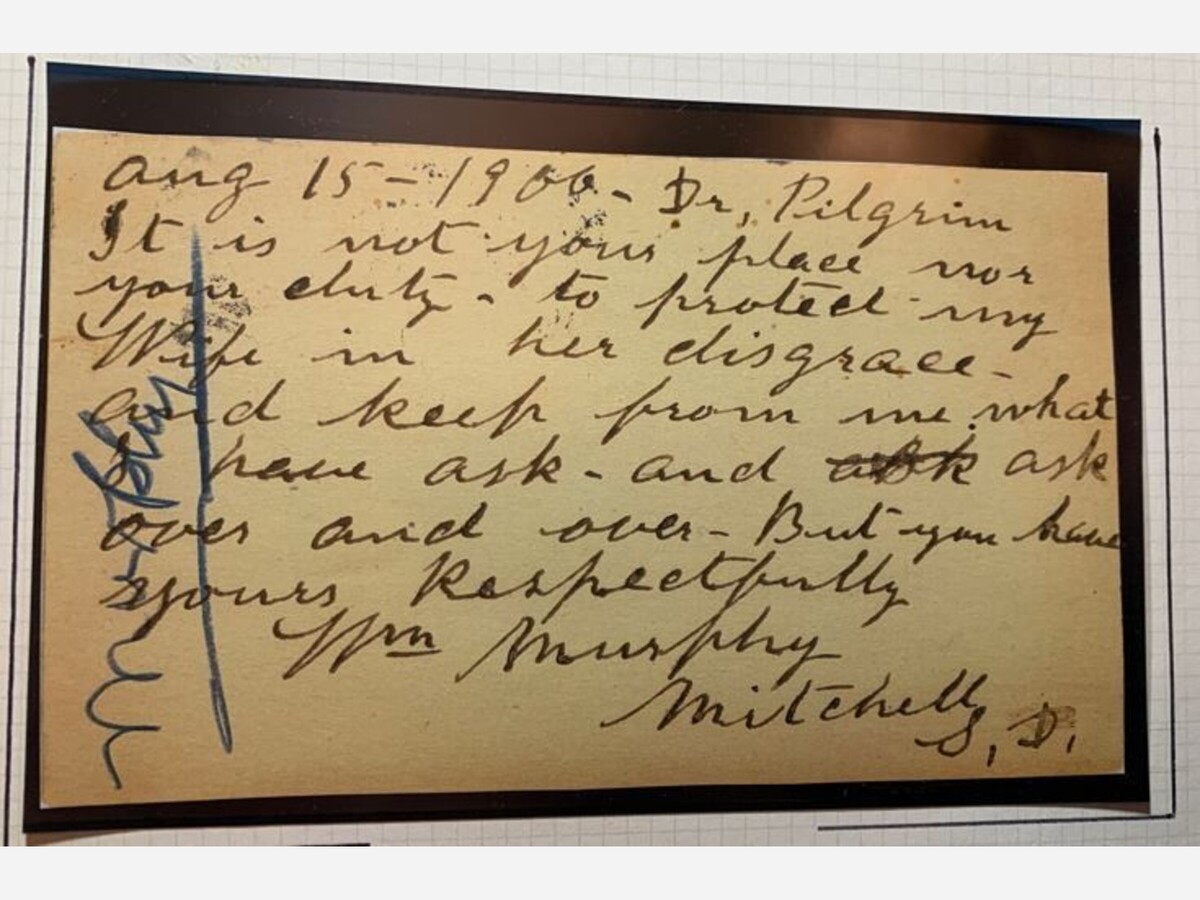 Aug 15 - 1906 - Dr, Pilgrim
It is not your place nor
your duty - to protect my
Wife in her disgrace -
and keep from me what
I have ask - and ask ask
over and over - But you have
yours Respectfully
Wm Murphy
Mitchell
S, D,
Murphy